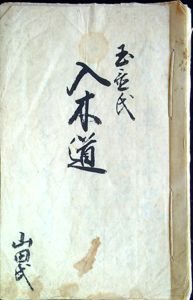 玉置氏
入木道
山田氏